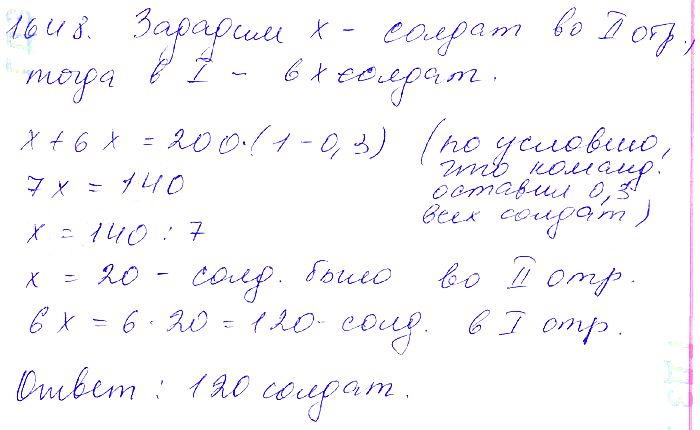 1648. Зададим x - солдат во II отр.,
тогда в I - 6x солдат.
x + 6x = 200·(1 - 0,3) (по условию,
что команд.
7x = 140 оставил 0,3
всех солдат)
x = 140 : 7
x = 20 - солд. было во II отр.
6x = 6·20 = 120 - солд. в I отр.
Ответ: 120 солдат.